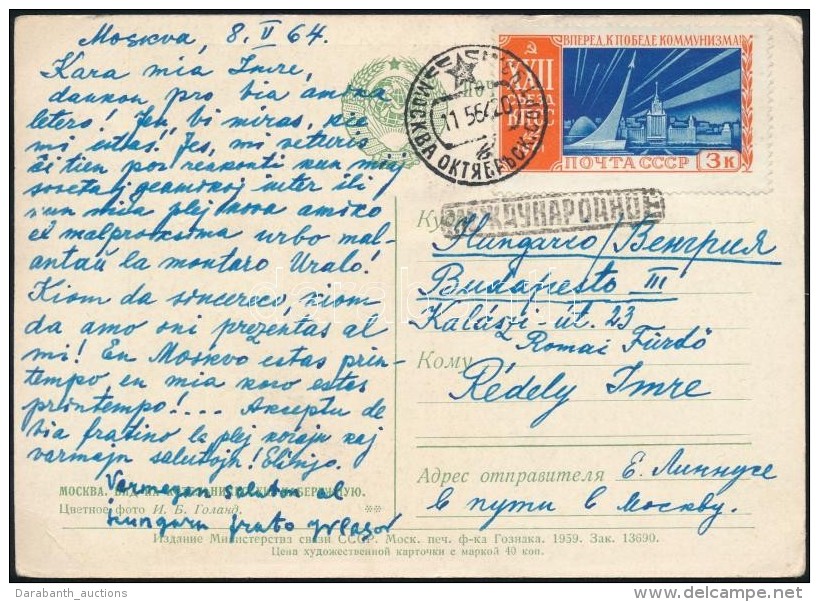 Moskva, 8. V 64.
Kara mia Imre,
dankon pro via amika
letero! Jen bi miras, kie
mi estas! Jes, mi veturis
ĉi tien por renkonti kun miaj
sovetaj geamikoj inter ili
kun mia plej nova amiko
el malproksima urbo mal-
antaŭ la montaro Uralo!
Kiom da sincereco, kiom
da amo oni prezentas al
mi! En Moskvo estas prin-
tempo, en mia koro estas
printempo!... Akceptu de
via fratino la plej korajn kaj
varmajn salutojn! Elinjo.
Varmegan saluton al
hungara frato
МОСКВА. ВИД НА НАБЕРЕЖНУЮ.
Цветное фото И. Б. Голанд.
**
ВПЕРЕД, К ПОБЕДЕ КОММУНИЗМА!
XXII
СЪЕЗД
КПСС
ПОЧТА СССР
3к
МОСКВА ОКТЯБРЬСК.
11 5 64 20
МЕЖДУНАРОДНОЕ
Куда
Hungario/Венгрия
Budapesto III
Kalászi-út. 23
Romai Fürdő
Кому
Rédely Imre
Адрес отправителя Е. Линнусе
в пути в Москву.
Издание Министерства связи СССР. Моск. печ. ф-ка Гознака. 1959. Зак. 13690.
Цена художественной карточки с маркой 40 коп.
darabanth
Darabanth_auctions
delcampe.net